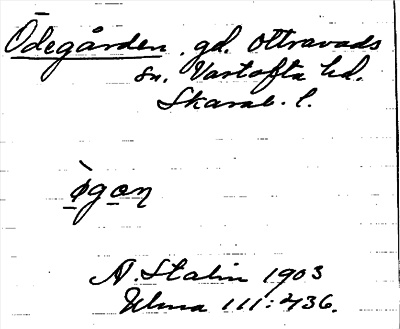 Ödegården. gd. Ottravads
sn. Vartofta hd.
Skarab. l.
ǿgon
A. Stalin 1903
Ulma 111:436.